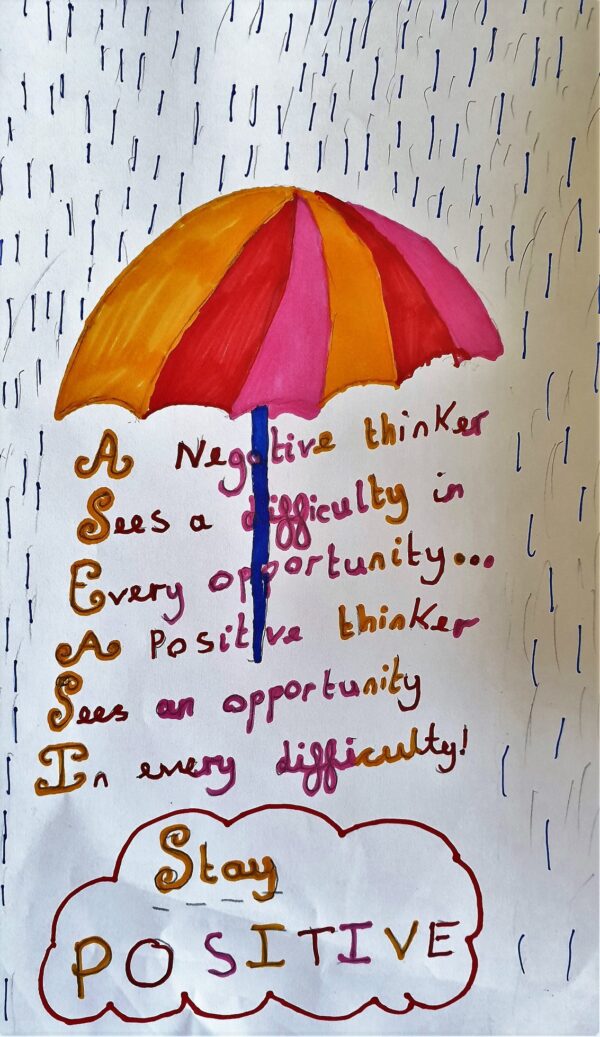 A Negative thinker
Sees a difficulty in
Every opportunity...
A Positive thinker
Sees an opportunity
In every difficulty!
Stay
POSITIVE